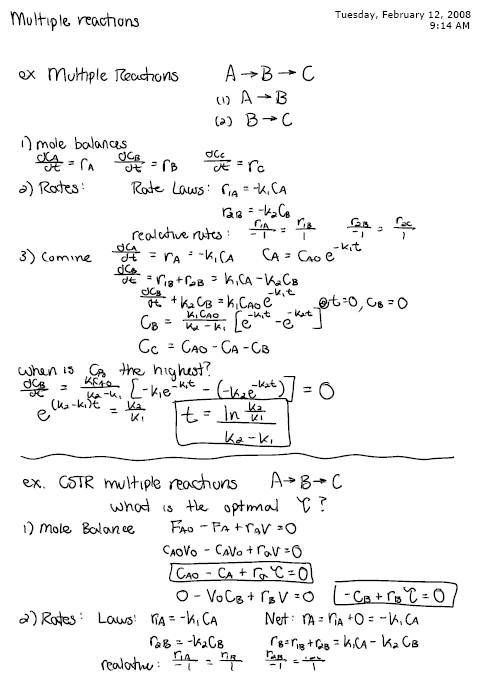 Multiple reactions
Tuesday, February 12, 2008
9:14 AM
ex Multiple Reactions A → B → C
(1) A → B
(2) B → C
1) mole balances
dCA/dt = rA dCB/dt = rB dCc/dt = rc
2) Rates: Rate Laws: r1A = -k1CA
r2B = -k2CB
realative rates: r1A/-1 = r1B/1 r2B/-1 = r2c/1
3) Comine dCA/dt = rA = -k1CA CA = CAO e^-k1t
dCB/dt = r1B + r2B = k1CA - k2CB
dCB/dt + k2CB = k1CAO e^-k1t @t=0, CB = 0
CB = k1CAO/k2-k1 [e^-k1t - e^-k2t]
Cc = CAO - CA - CB
when is CB the highest?
dCB/dt = k1CAO/k2-k1 [-k1e^-k1t - (-k2e^-k2t)] = 0
e^(k2-k1)t = k2/k1 t = ln k2/k1 / k2-k1
ex. CSTR multiple reactions A → B → C
what is the optmal τ?
1) Mole Balance FAO - FA + raV = 0
CAOVo - CAVo + raV = 0
CAO - CA + ra τ = 0
0 - VoCB + rBV = 0 -CB + rB τ = 0
2) Rates: Laws: r1A = -k1CA Net: rA = r1A + 0 = -k1CA
r2B = -k2CB rB = r1B + r2B = k1CA - k2CB
realative: r1A/-1 = r1B/1 r2B/-1 =